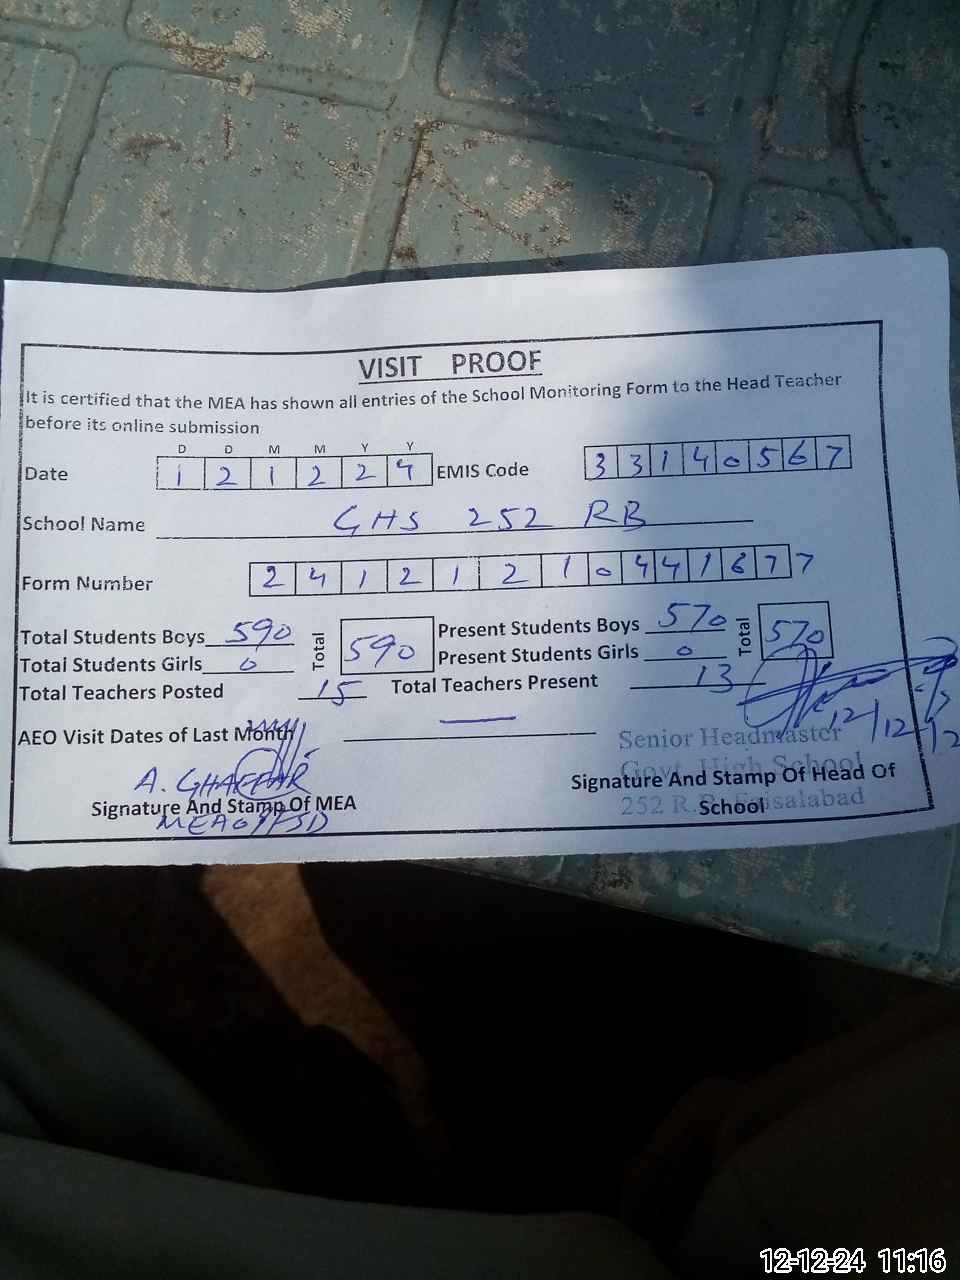 VISIT PROOF
It is certified that the MEA has shown all entries of the School Monitoring Form to the Head Teacher
before its online submission
D D M M Y Y
Date 1 2 1 2 2 4 EMIS Code 3 3 1 4 0 5 6 7
School Name GHS 252 RB
Form Number 2 4 1 2 1 2 1 0 4 4 1 6 7 7 7
Total Students Boys 590 Total 590 Present Students Boys 570 Total 570
Total Students Girls 0 Present Students Girls 0
Total Teachers Posted 15 Total Teachers Present 13
12/12/2
AEO Visit Dates of Last Month —
Senior Headmaster
Govt. High School
252 R.B. Faisalabad
A. GHAFFAR
Signature And Stamp Of MEA
Signature And Stamp Of Head Of
School
12-12-24 11:16